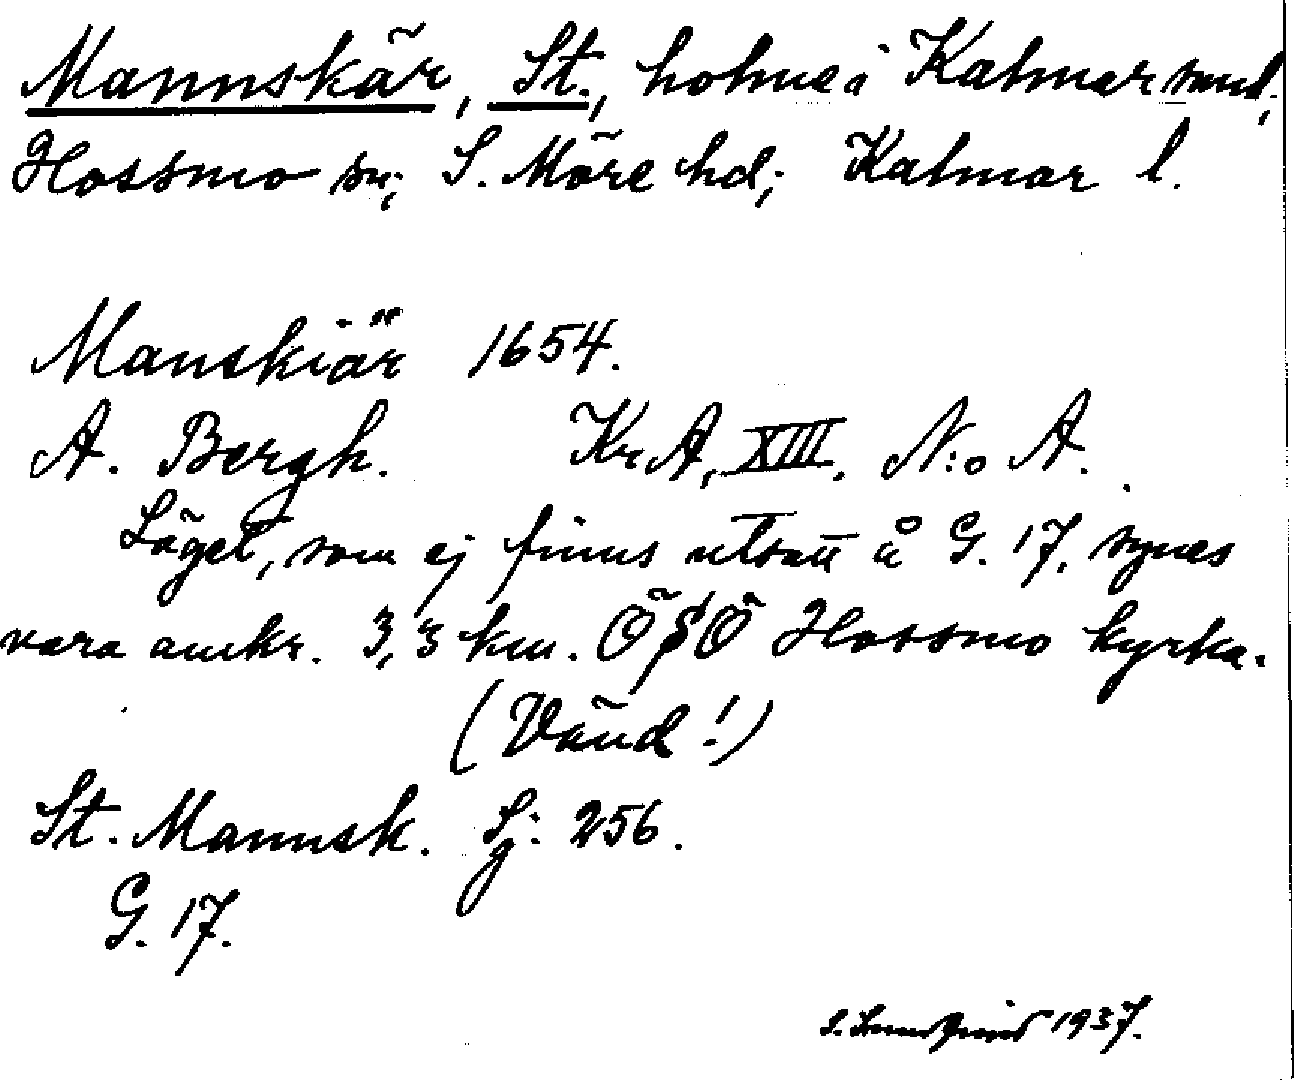 Mannskär, St., holme i Kalmarsund,
Hossmo sn; S. Möre hd; Kalmar l.
Manskiär 1654.
A. Bergh. KrA, XIII. N:o A.
Läget, som ej finns utsatt å G. 17, synes
vara omkr. 3,3 km. ÖSÖ Hossmo kyrka.
(Vänd!)
St. Mannsk. Sj. 256.
G. 17.
1937.